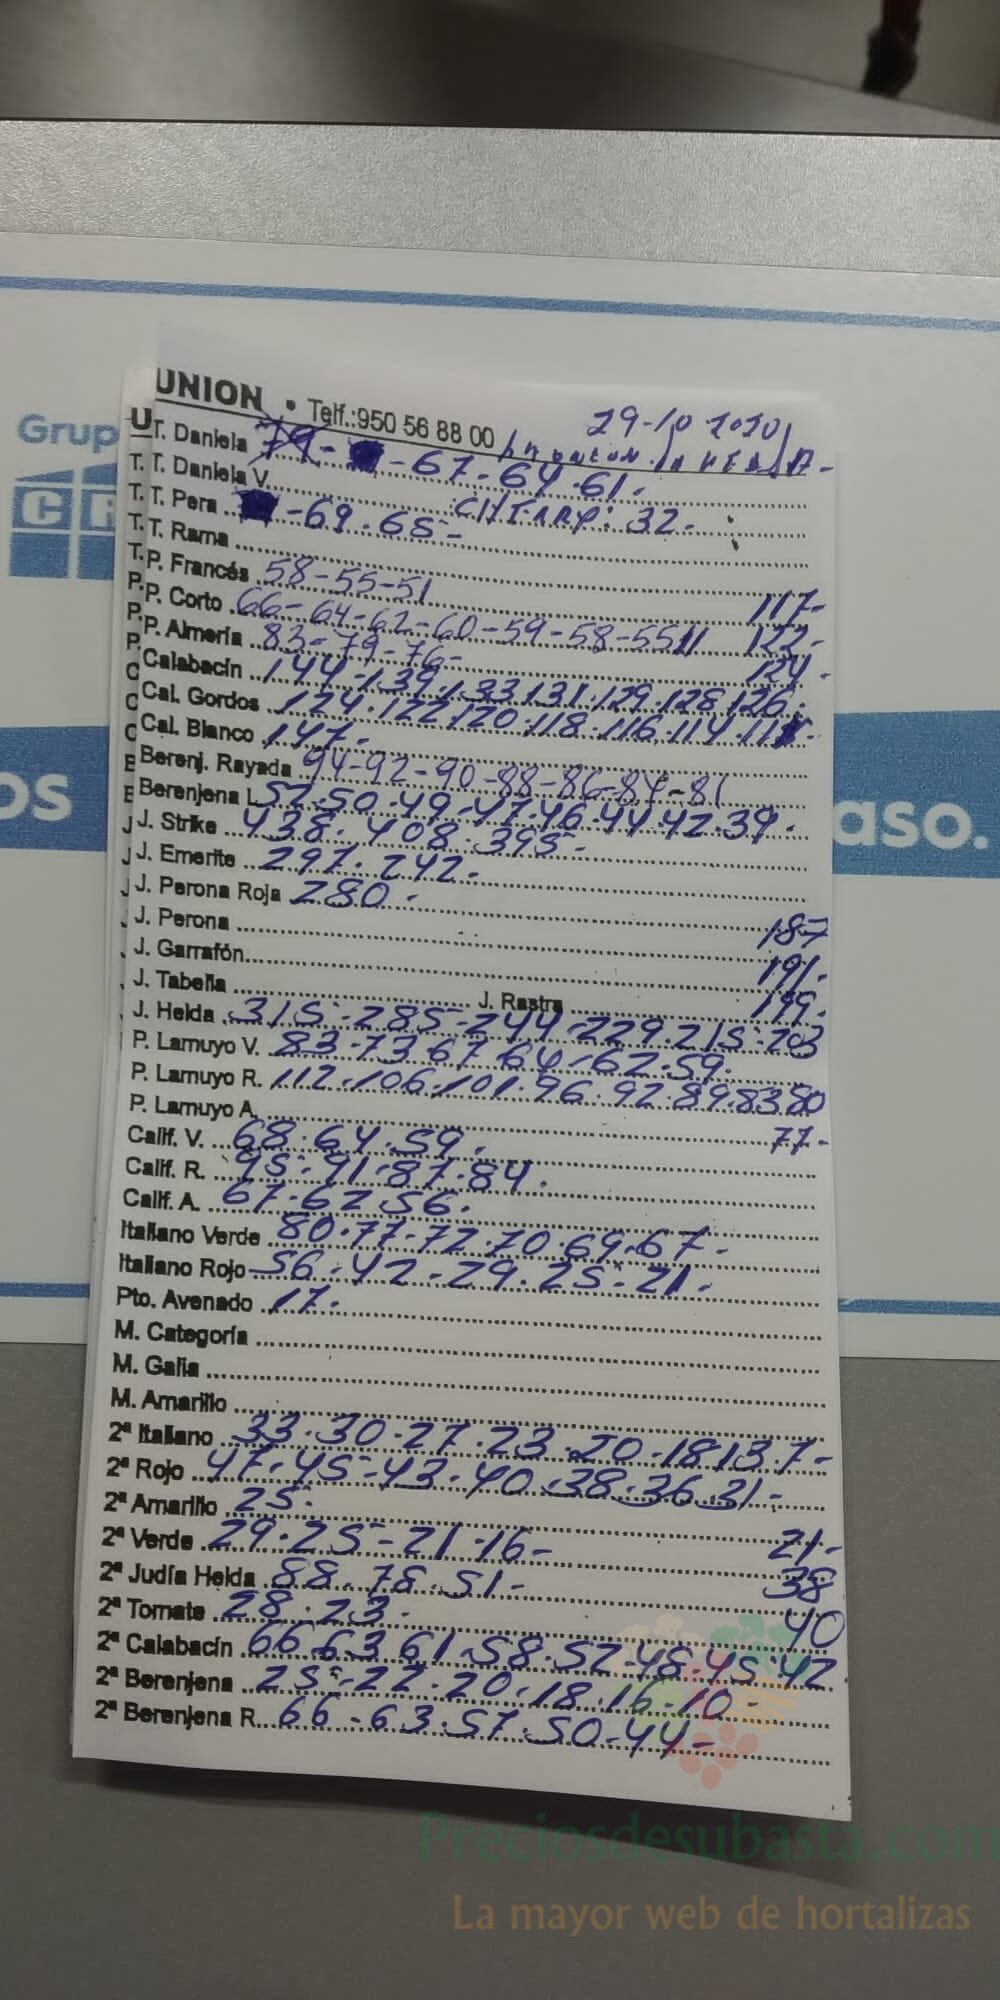 UNION • Telf.:950 56 88 00 29-10 2020
U
Grup
C
os
aso.
T. Daniela 79- -67-64.61.
T. T. Daniela V.
T. T. Pera -69.65- 32-
T. T. Rama
T. P. Francés 58-55-51 117-
P. P. Corto 66-64-62-60-59-58-55 122-
P. P. Almería 83-79-76- 124.
P. Calabacín 144-139.133.131.129.128.126.
C Cal. Gordos 124.122.120.118.116.114.111-
C Cal. Blanco 147.
Berenj. Rayada 94-92-90-88-86-84-81
Berenjena L 52.50.49.47.46.44.42.39.
J. Strike 438.408.395-
J. Emerite 297.242.
J. Perona Roja 280.
J. Perona 187
J. Garrafón 191.
J. Tabella J. Rastra 199.
J. Helda 315-285-244.229.215-203
P. Lamuyo V. 83-73.67.64.62.59.
P. Lamuyo R. 112.106.101.96.92.89.83.80
P. Lamuyo A. 77-
Calif. V. 68.64.59.
Calif. R. 95-91.87.84.
Calif. A. 67.62.56.
Italiano Verde 80.77.72.70.69.67-
Italiano Rojo 56.42.29.25-21.
Pto. Avenado 17.
M. Categoría
M. Galia
M. Amarillo
2ª Italiano 33.30.27.23.20.18.13.7-
2ª Rojo 47.45-43.40.38.36.31-
2ª Amarillo 25. 21-
2ª Verde 29.25-21.16- 38
2ª Judía Helda 88.78.51- 40
2ª Tomate 28.23.
2ª Calabacín 66.63.61.58.52.48.45-42
2ª Berenjena 25-22.20.18.16-10
2ª Berenjena R. 66-63.57.50-44-
Preciosdesubasta.com
La mayor web de hortalizas